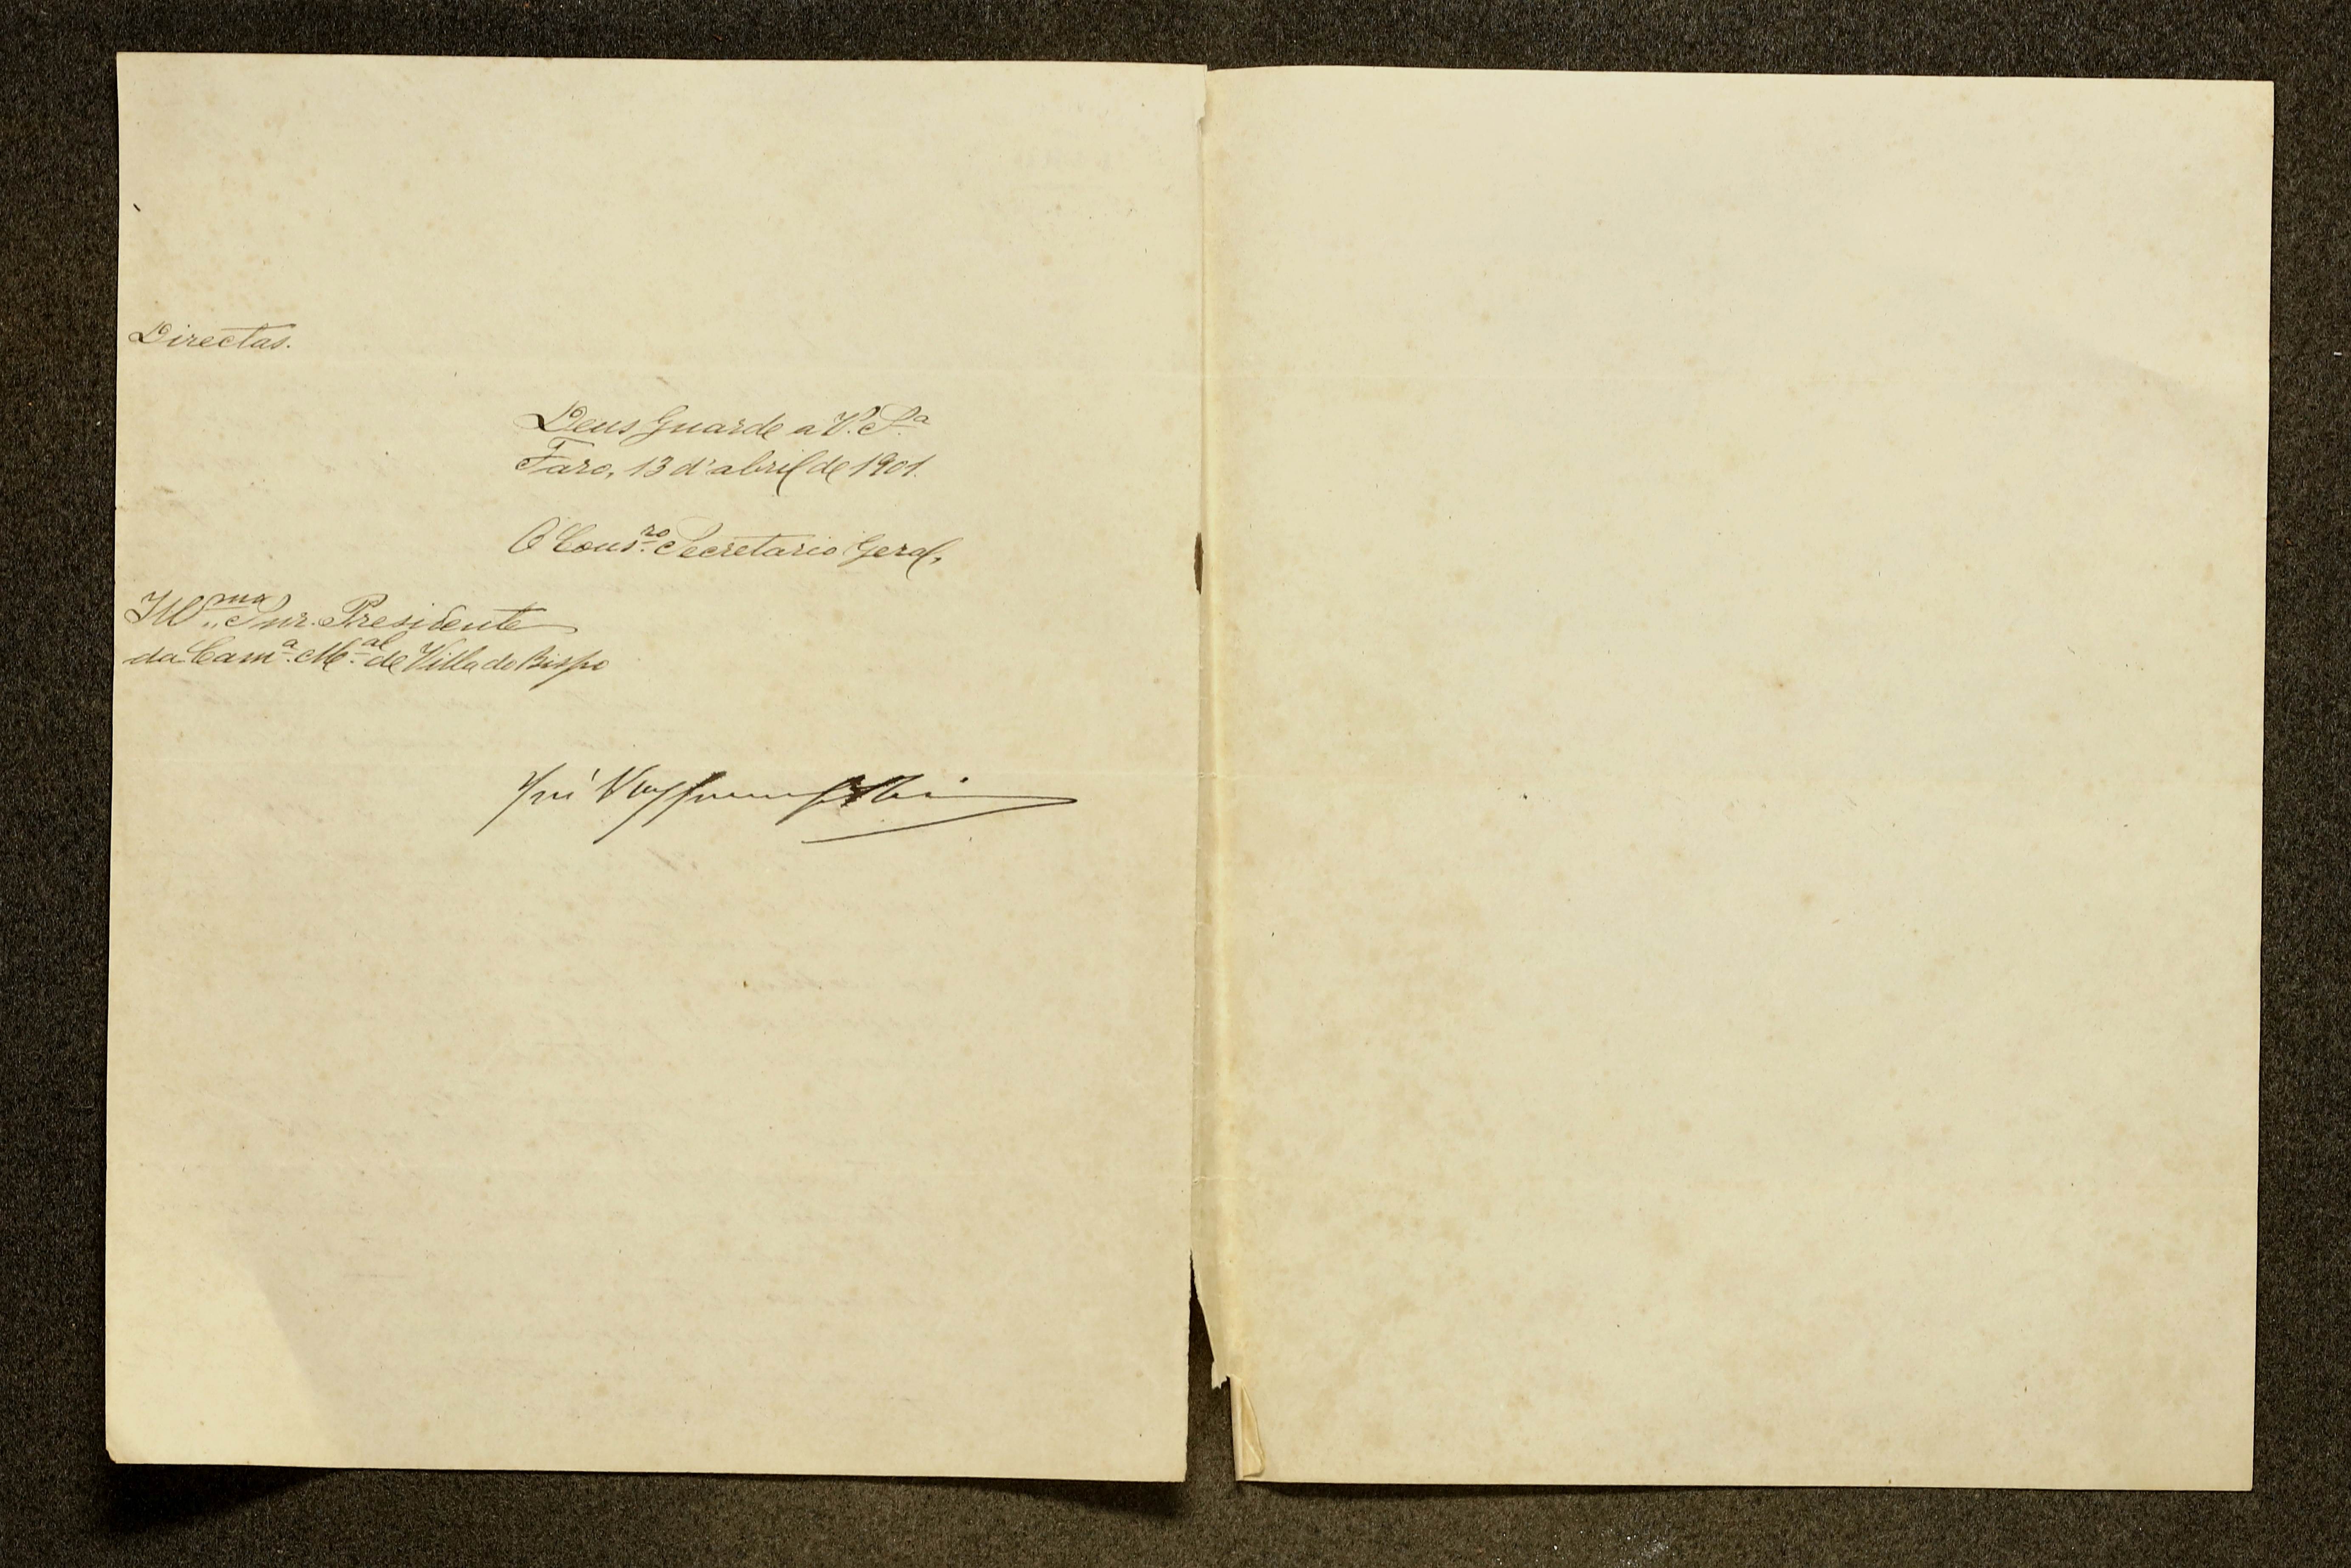 Directas.
Deus Guarde a V. S.ª
Faro, 13 d'abril de 1901.
O Cons.ro Secretario Geral,
Ill.mo Snr. Presidente
da Cam.ª M.al de Villa do Bispo
José